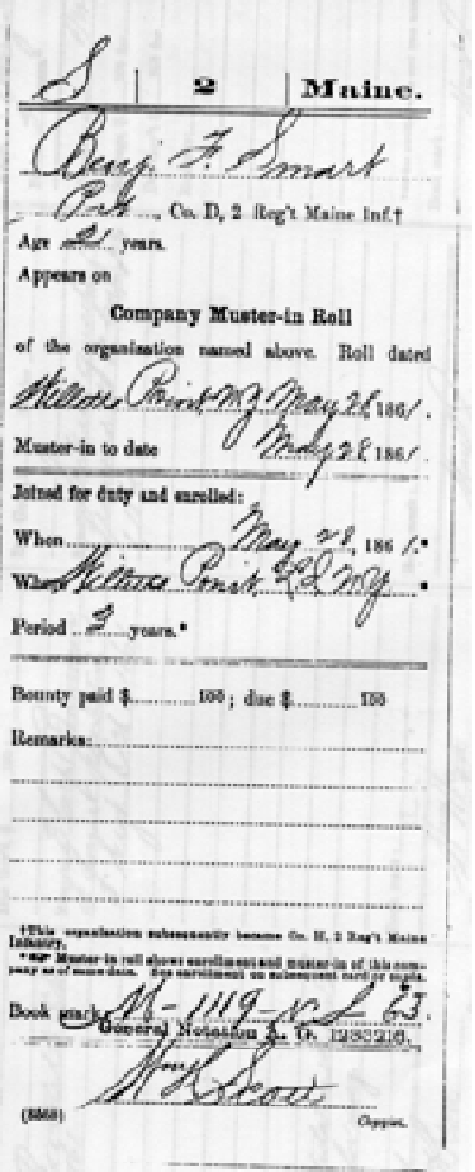 S | 2 | Maine.
Benj. F. Smart
Pvt, Co. D, 2 Reg't Maine Inf.†
Age years.
Appears on
Company Muster-in Roll
of the organization named above. Roll dated
Willets Point NY May 28, 1861.
Muster-in to date May 28, 1861.
Joined for duty and enrolled:
When May 28, 1861.*
Where Willets Point L.I. NY *
Period 2 years.*
Bounty paid $ 100; due $ 100
Remarks:
†This organization subsequently became Co. H, 2 Reg't Maine
Infantry.
Muster-in roll shows enrollment and muster-in of this com-
pany as of same date. See enrollment on subsequent card or cards.
Book mark: M-1119-V.S. 63.
General Notation A. G. 1283218.
Wm K Scott
Copyist.